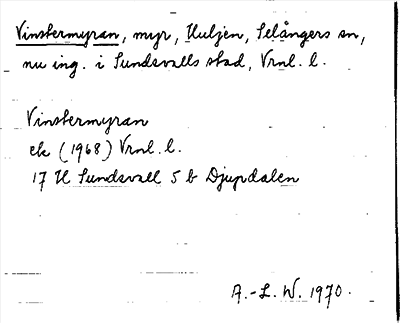 Vinstermyran, myr, Huljen, Selångers sn,
nu ing. i Sundsvalls stad, Vrnl. l.
Vinstermyran
ek (1968) Vrnl. l.
17 H Sundsvall 5 b Djupdalen
A.-L. W. 1970.